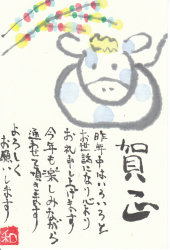 賀正
昨年中はいろいろと
お世話になり心より
お礼申し上げます
今年も楽しみながら
進ませて頂きます
よろしく
お願いします
和